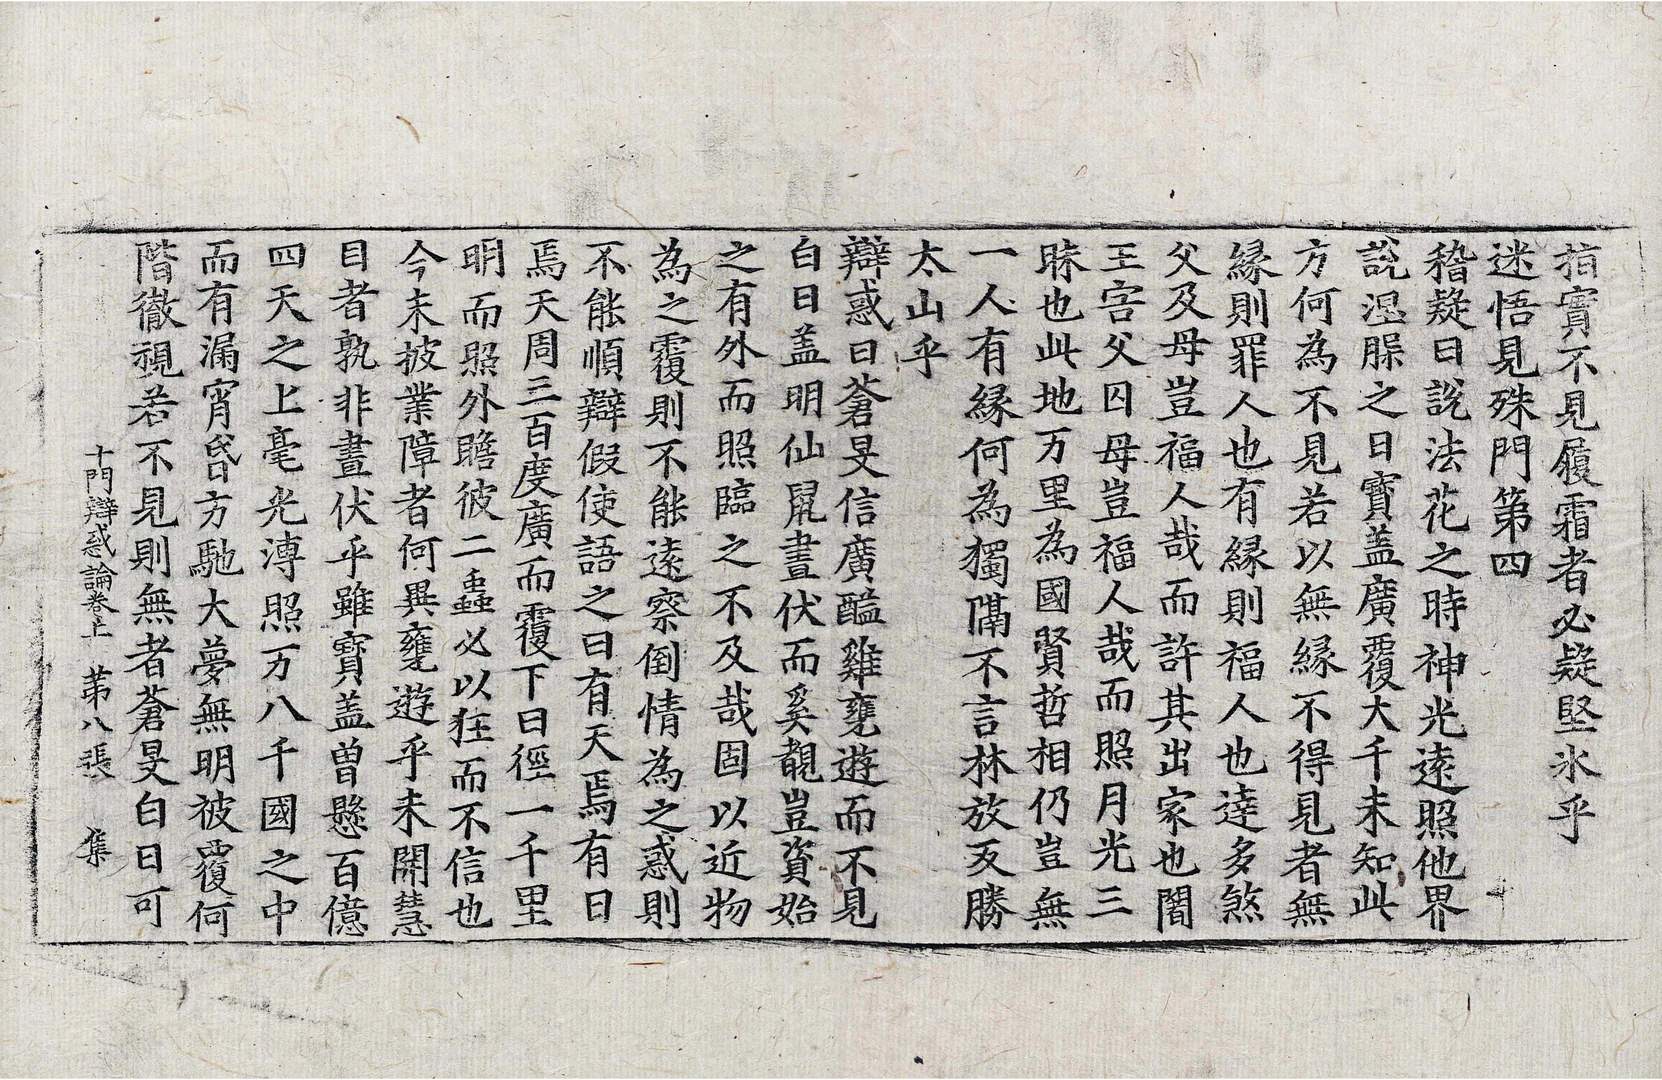 指實不見履霜者必疑堅氷乎
迷悟見殊門第四
稽疑曰說法花之時神光遠照他界
說涅槃之日寶盖廣覆大千未知此
方何為不見若以無緣不得見者無
緣則罪人也有緣則福人也達多煞
父及母豈福人哉而許其出家也闍
王害父囚母豈福人哉而照月光三
昧也此地万里為國賢哲相仍豈無
一人有緣何為獨隔不言林放叐勝
太山乎
辯惑曰蒼旻信廣醯雞甕遊而不見
白日盖明仙鼠晝伏而奚覩豈資始
之有外而照臨之不及哉固以近物
為之覆則不能遠察倒情為之惑則
不能順辯假使語之曰有天焉有日
焉天周三百度廣而覆下日徑一千里
明而照外瞻彼二蟲必以狂而不信也
今未披業障者何異甕遊乎未開慧
目者孰非晝伏乎雖寶盖曾懸百億
四天之上毫光溥照万八千國之中
而有漏宵昏方馳大夢無明被覆何
階徹視若不見則無者蒼旻白日可
十門辯惑論卷上 第八張 集